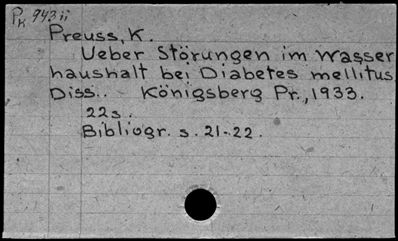 PK 943 ii
Preuss, K.
Ueber Störungen im Wasser
haushalt bei Diabetes mellitus.
Diss.. Königsberg Pr., 1933.
22s.
Bibliogr. s. 21-22.